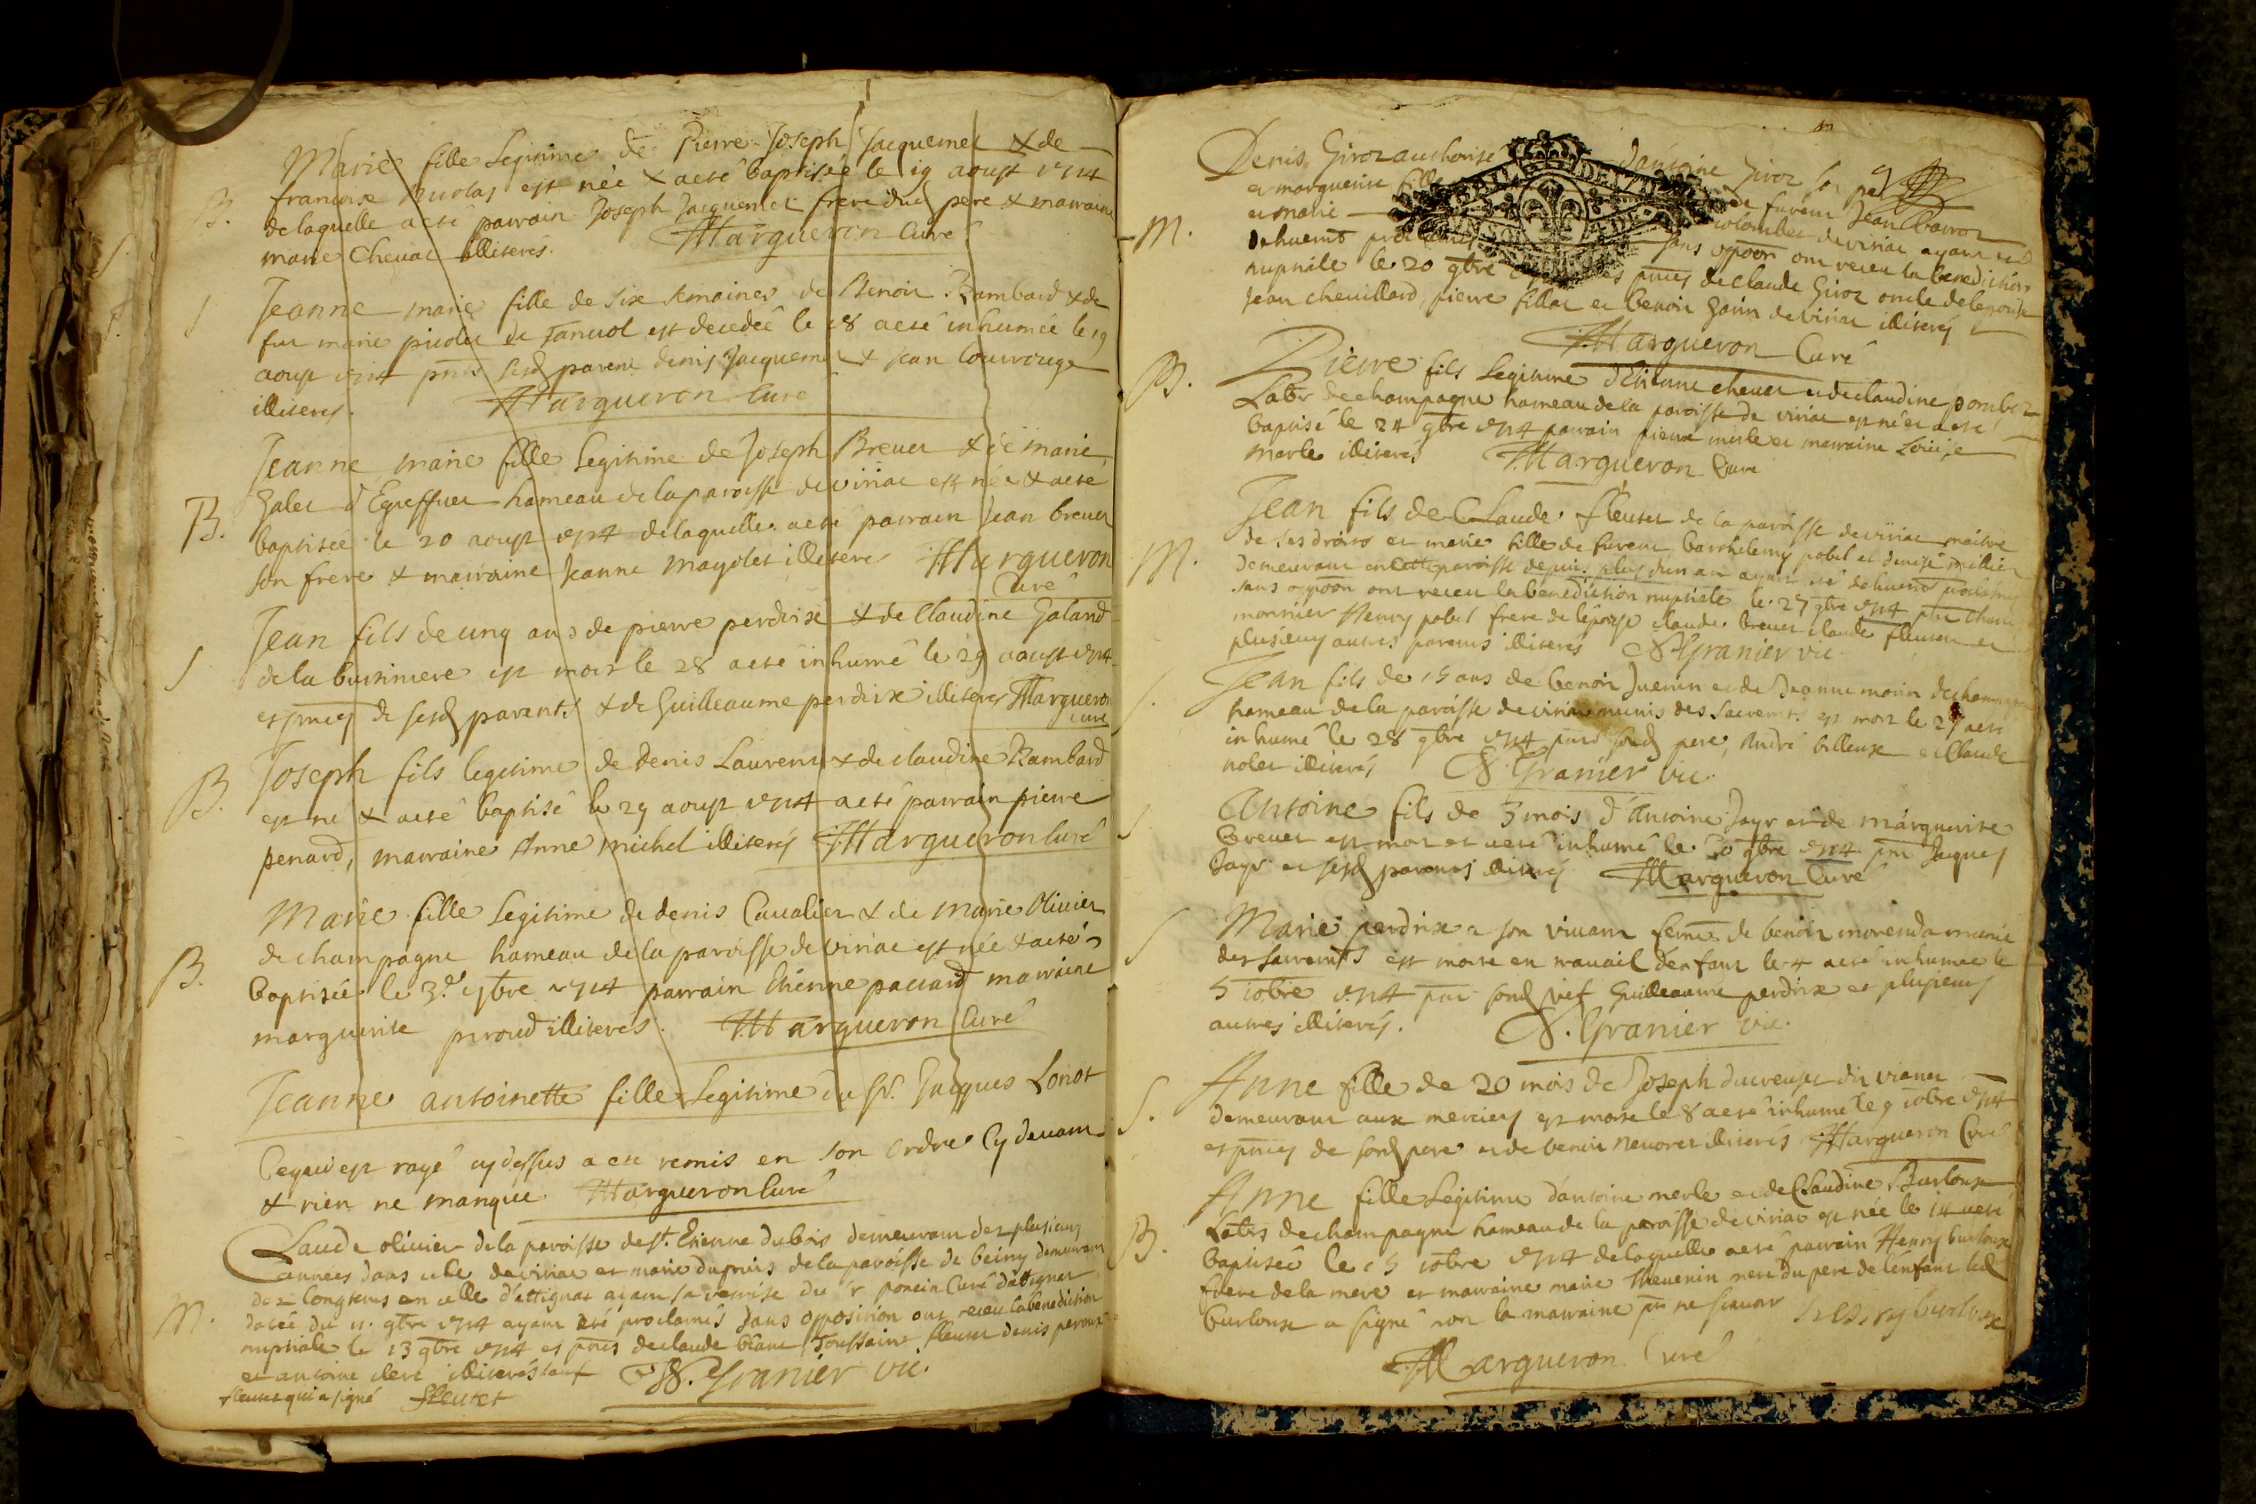 Marie fille Legitime de Pierre Joseph Jacquemet & de
francoise nicolas est née & aeté baptisée le 19 aoust 1714
B.
de laquelle aeté parrain Joseph Jacquemet frere dud pere & marraine
marie Chevat illiterés. Margueron Curé
S
Jeanne marie fille de six semaines de Benoit Rambard & de
fut marie picolet de Tanvol est decedeé le 18 aeté inhumée le 19
aoust 1714 pnts sesd parent denis Jacquemet & Jean Courrouge
illiterés. Margueron Curé
Jeanne marie fille Legitime de Joseph Brevet & de marie
Galet d'Egreffuet hameau de la paroisse de viriat est née & aeté
B.
baptisée le 20 aoust 1714 de laquelle aeté parrain Jean brevet
son frere & marraine Jeanne mayolet illiteres Margueron
Curé
Jean fils de cinq ans de pierre perdrix & de Claudine Galand
S
de la buisiniere est mort le 28 aeté inhumé le 29 aoust 1714
es pnces de sesd parents & de Guilleaume perdrix illiteres Margueron
curé
B.
Joseph fils legitime de Denis Laurent & de claudine Rambard
est né & aeté baptisé le 29 aoust 1714 aeté parrain pierre
penard, marraine Anne michel illiterés Margueron Curé
Marie fille Legitime de denis Cavalier & de marie Olivier
de champagne hameau de la paroisse de viriat est née & aeté
B.
baptisée le 3e 7bre 1714 parrain Etienne paccard marraine
marguerite peroud illiterés. Margueron Curé
Jeanne antoinette fille Legitime du Sr. Jacques Loriot
Ce qui est rayé cy dessus a eté remis en son ordre Cy devant
& rien ne manque Margueron Curé
Claude olivier de la paroisse de St. Etienne du bois demeurant dez plusieurs
années dans celle de viriat et marie dupuis de la paroisse de beiny demeurant
dez longtems en celle d'attignat ayant sa remise du Sr poncin Curé dattignat
M.
datée du 11. 9bre 1714 ayant été proclamés sans opposition ont receu la benediction
nuptiale le 13 9bre 1714 es pnces de claude blanc Toussaint fleuret denis peroux
et antoine clerc illiterés sauf N. Granier vic.
fleuret qui a signé fleuret
Denis Giroz authorisé d'antoine Giroz son pere
et marguerite fille de fureur Jean Baroz
M.
et marie colombet de viriat ayant eté
dehuemt proclamés sans oppoon ont receu la benediction
nuptiale le 20 9bre es pnces de claude Giroz oncle de lepouse
Jean chevillard, pierre fillat et benoit Gorin de viriat illiterés
Margueron Curé
B.
Pierre fils Legitime d'Etienne chevet et de claudine pombet
Labrs de champagne hameau de la paroisse de viriat est né et aeté
baptisé le 24 9bre 1714 parrain pierre merle et marraine Louise
Merle illiterés Margueron Curé
Jean fils de Claude fleuret de la paroisse de viriat maitre
de ses droits et marie fille de fureur barthelemy pobel et denise millier
M.
demeurant en cette paroisse depuis plus d'un an ayant eté dehuemt proclamés
sans oppoon ont receu la benediction nuptiale le 27 9bre 1714
monnier Henry pobel frere de lépouse claude brevet claude fleuret et
plusieurs autres parents illiterés N. Granier vic.
S.
Jean fils de 15 ans de benoit Juenin et de Jeanne morin de champagne
hameau de la paroisse de viriat munis des sacremts. est mort le 27 aeté
inhumé le 28 9bre 1714 pnts sond pere, André billoux et Claude
nolet illiterés N. Granier vic.
S
Antoine fils de 3 mois d'Antoine Jayr et de marguerite
Brevet est mort et aeté inhumé le 30 9bre 1714 pnt Jacques
Jayr et sesd parents illiterés Margueron Curé
S
Marie perdrix a son vivant feme de benoit morenda munie
des sacremts est morte en travail d'enfant le 4 aeté inhumée le
5 10bre 1714 pnt sond Guilleaume perdrix et plusieurs
autres illiterés. N. Granier vic.
S.
Anne fille de 20 mois de Joseph ducreuset dit vianet
demeurant aux merciers est morte le 8 aeté inhumé le 9 10bre 1714
es pnces de sond pere et de benoit nevoret illiterés Margueron Curé
B.
Anne fille Legitime d'antoine merle et de Claudine Burtoux
Labrs de champagne hameau de la paroisse de viriat est née le 14 aeté
baptisée le 15 10bre 1714 de laquelle aeté parrain Henry burtoux
frere de la mere et marraine marie Thevenin mere du pere de lenfant led
burtoux a signé non la marraine pr ne scavoir henry burtoux
Margueron Curé